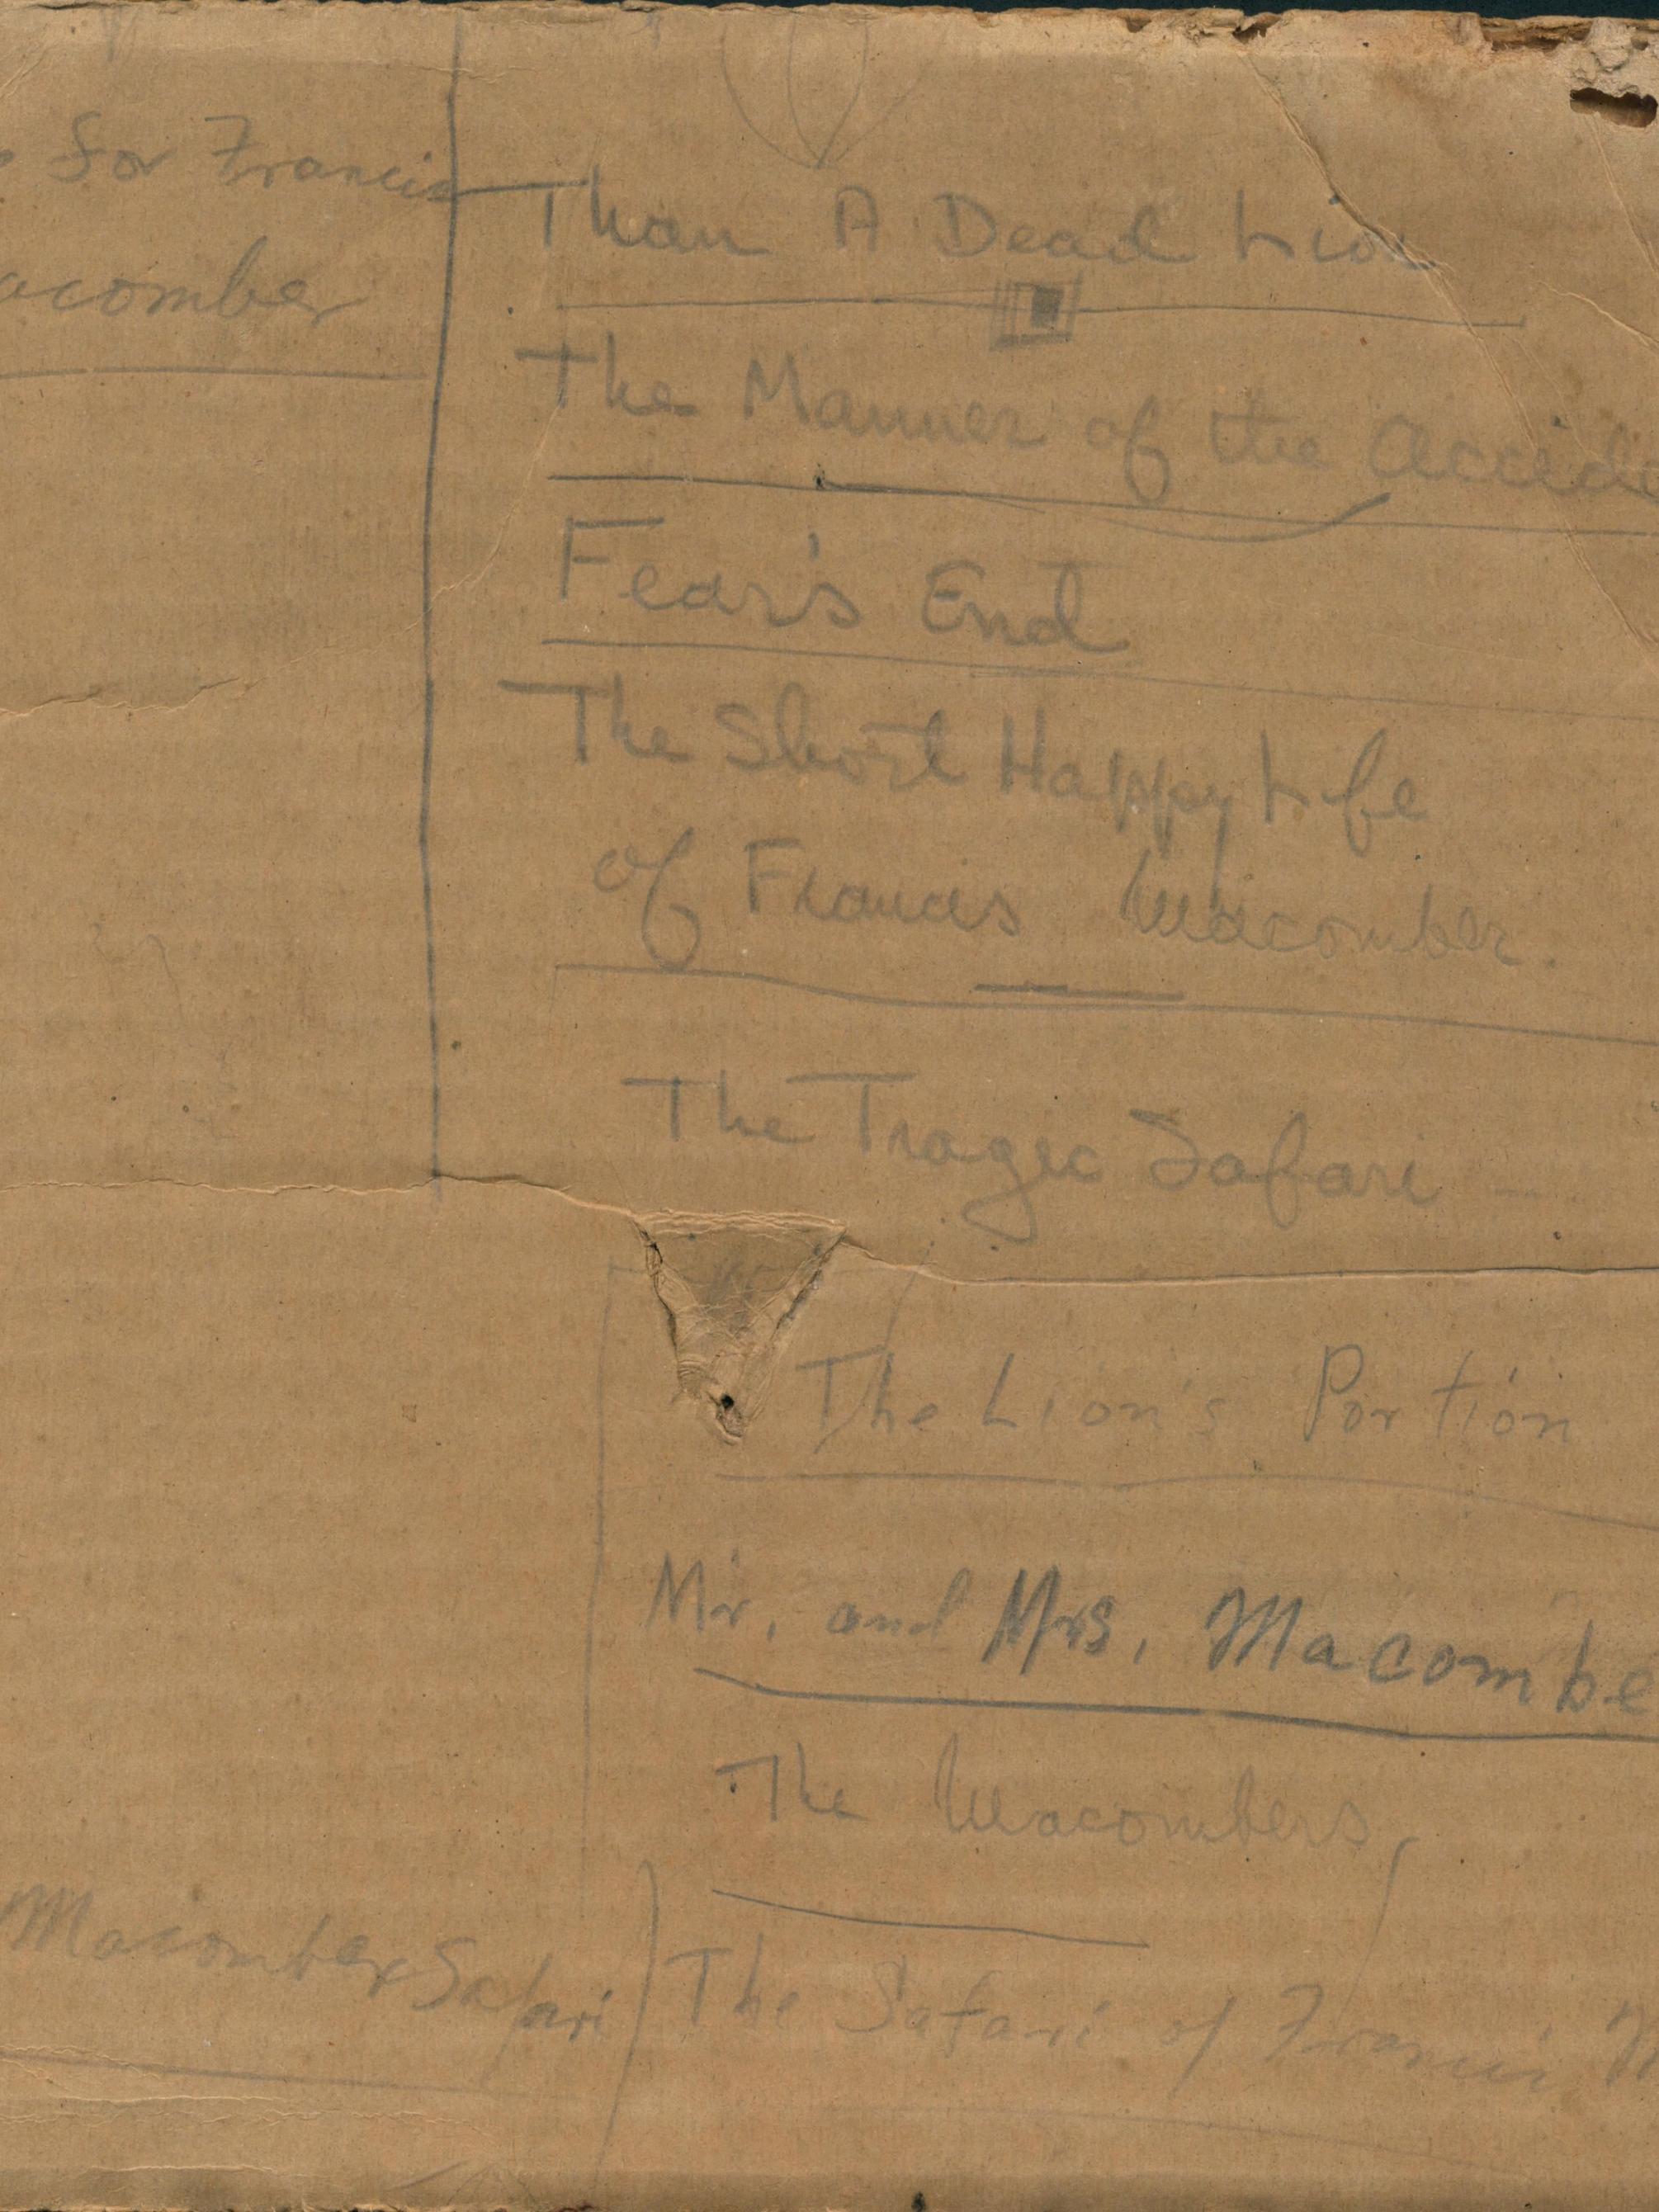 for Francis
acomber
Than A Dead Lion
The Manner of the Accide
Fear's End
The Short Happy Life
of Francis Macomber.
The Tragic Safari
The Lion's Portion
Mr. and Mrs. Macombe
The Macombers
Macomber Safari
The Safari of Francis M